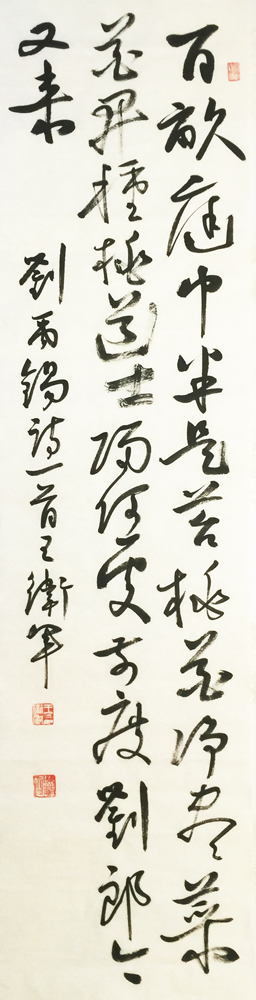 百畝庭中半是苔桃花淨盡菜
花開種桃道士歸何處前度劉郎今
又來
劉禹錫詩一首王衛軍